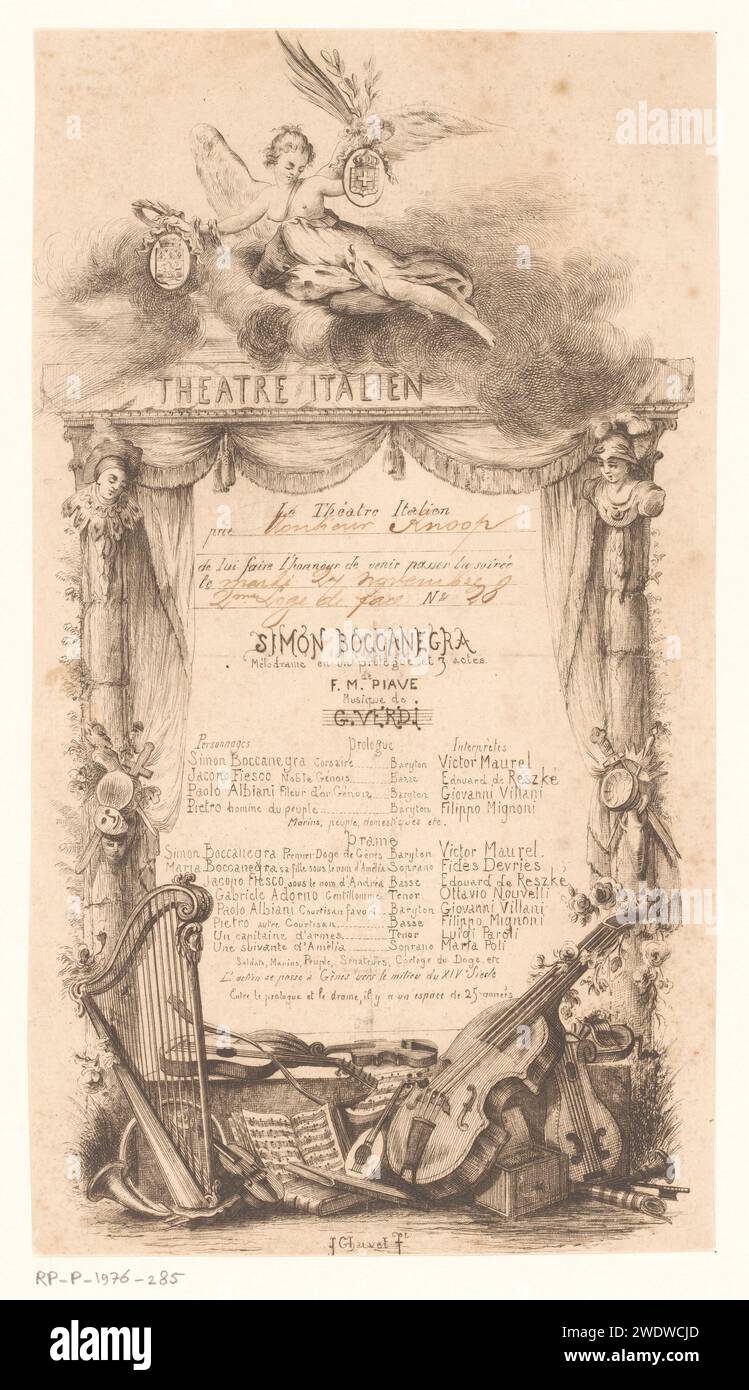 THEATRE ITALIEN
Le Théatre Italien
prie Monsieur Knoop
de lui faire l'honneur de venir passer la soirée
le mardi 27 novembre
2me Loge de face No 20
SIMON BOCCANEGRA
Mélodrame en un prologue et 3 actes
de
F. M. PIAVE
Musique de
G. VERDI
Personnages Prologue Interprètes
Simon Boccanegra Corsaire Baryton Victor Maurel
Jacopo Fiesco Noble Génois Basse Edouard de Reszké
Paolo Albiani Fileur d'or Génois Baryton Giovanni Villani
Pietro homme du peuple Baryton Filippo Mignoni
Marins, peuple, domestiques etc.
Drame
Simon Boccanegra Premier Doge de Gênes Baryton Victor Maurel.
Maria Boccanegra sa fille sous le nom d'Amélia Soprano Fides Devriès
Jacopo Fiesco sous le nom d'Andréa Basse Edouard de Reszké
Gabriele Adorno Gentilhomme Tenor Ottavio Nouvelli
Paolo Albiani Courtisan favori Baryton Giovanni Villani
Pietro autre Courtisan Basse Filippo Mignoni
Un capitaine d'armes Tenor Luigi Paroli
Une suivante d'Amélia Soprano Maria Poli
Soldats, Marins, Peuple, Sénateurs, Cortège du Doge, etc
L'action se passe à Gênes vers le milieu du XIVe Siècle
Entre le prologue et le drame, il y a un espace de 25 années
J Chauvet Ft
RP-P-1976-285
alamy
alamy
Image ID: 2WDWCJD
www.alamy.com